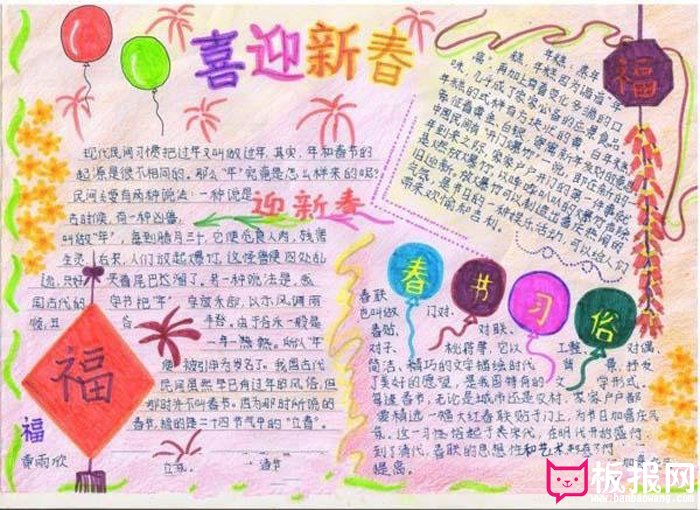 喜迎新春
现代民间习惯把过年又叫做过年。其实，年和春节的
起源是很不相同的。那么"年"究竟是怎么样来的呢？
民间主要有两种说法：一种说是
古时候，有一种凶兽，
迎新春
叫做"年"，每到腊月三十，它便
生灵。后来，人们放起爆竹，这怪兽便四处乱
逃，只好
夹着尾巴长溜了。另一种说法是，我
国古代的
字书把"年"
字放禾部，以示风调雨
顺，五
谷
丰登。由于谷禾一般是
一年一熟。所以"年"
便
被引申为岁名了。我国古代
民间虽然早已有过年的风俗，但
那时并不叫春节。因为那时所说的
春节，指的是二十四节气中的"立春"。
福
福
黄雨欣
福
年糕
年糕，蒸年
糕，年糕因为谐音"年
高"，再加上有着变化多端的口
味，几乎成了家家必备的应景食品。
年糕的式样有方块状的黄、白年糕，
象征着黄金、白银，寄寓新年发财的意思
中国民间有"开门爆竹"一说。即在新的一
年到来之际，家家户户开门的第一件事就
是燃放爆竹，以哔哔叭叭的爆竹声除
旧迎新。放爆竹可以创造出喜庆热闹的
气氛，是节日的一种娱乐活动，可以给人们
带来欢愉和吉利。
春节习俗
春联
也叫做
门对、
春贴、
对联、
对子、
桃符等，它以
工整、
对偶、
简洁、精巧的文字描绘时代
背
景，抒发
了美好的愿望，是我国特有的
文
学形式。
每逢春节，无论是城市还是农村，家家户户都
要精选一幅大红春联贴于门上，为节日增加喜庆气
氛。这一习俗起于宋代，在明代开始盛行，
到了清代，春联的思想性和艺术性都有了
提高。
板报网
www.banbaowang.com